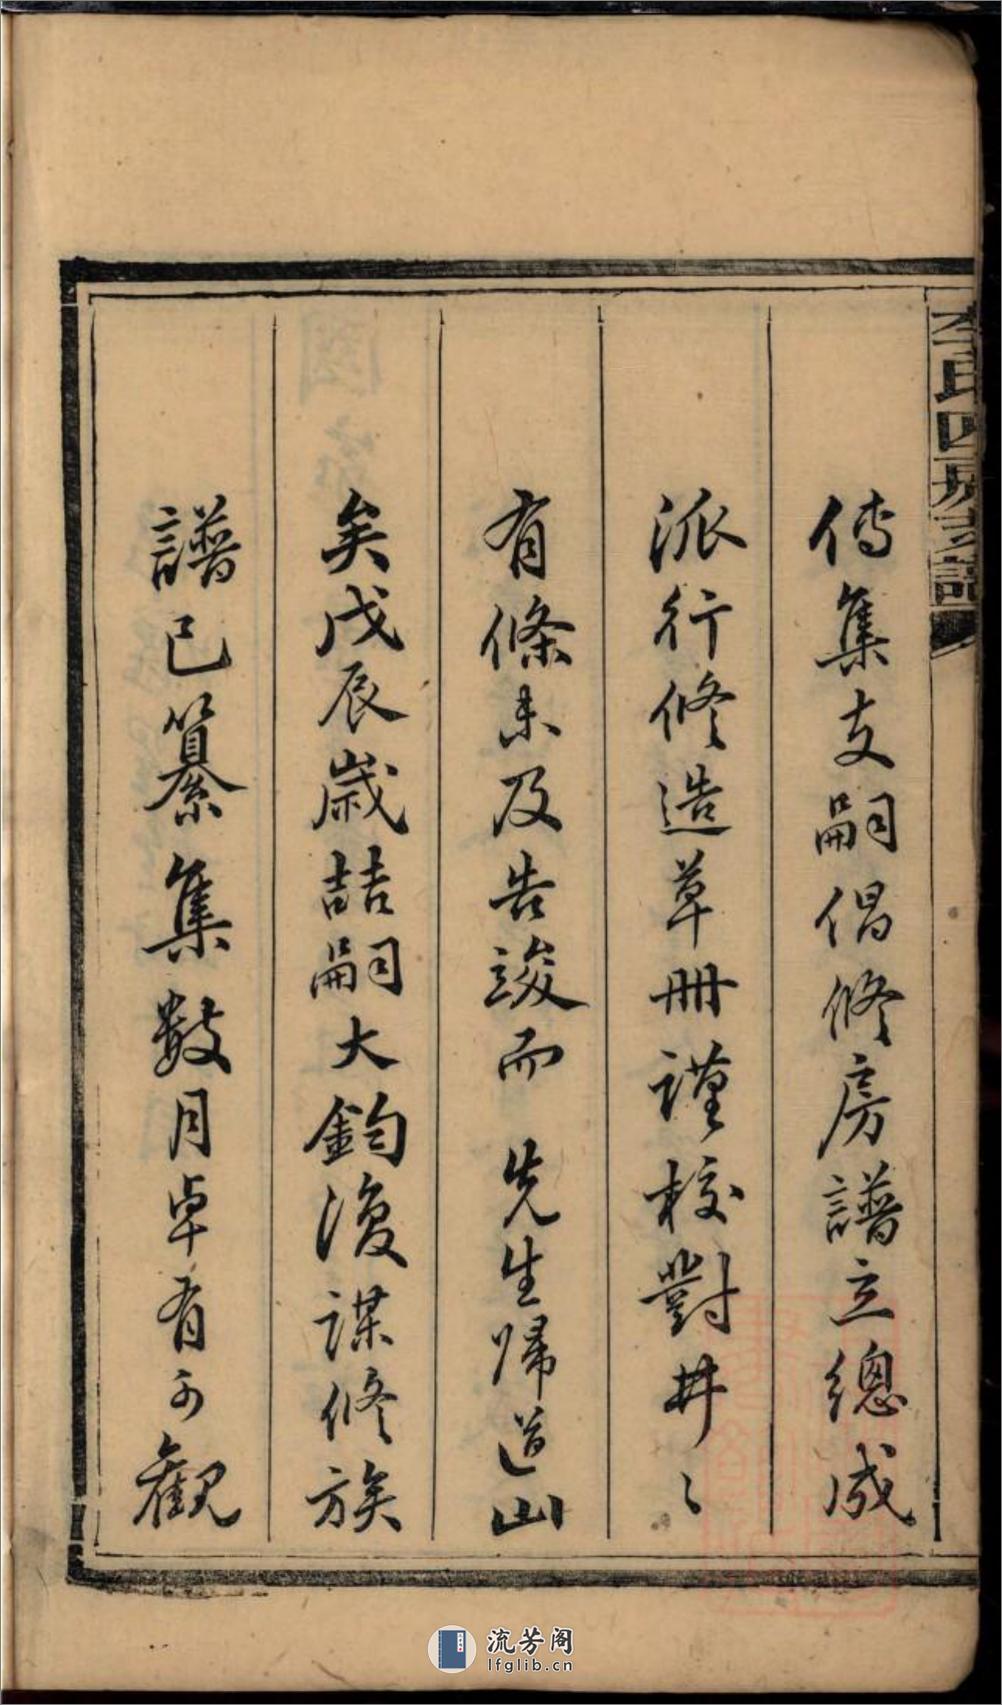 李氏四房支譜
傳集支嗣倡修房譜立總成
派行修造草冊謹校對井〻
有條未及告竣而 先生歸道山
矣戊辰歲喆嗣大鈞復謀修族
譜已纂集數月卓有可觀
流芳阁
lfglib.cn